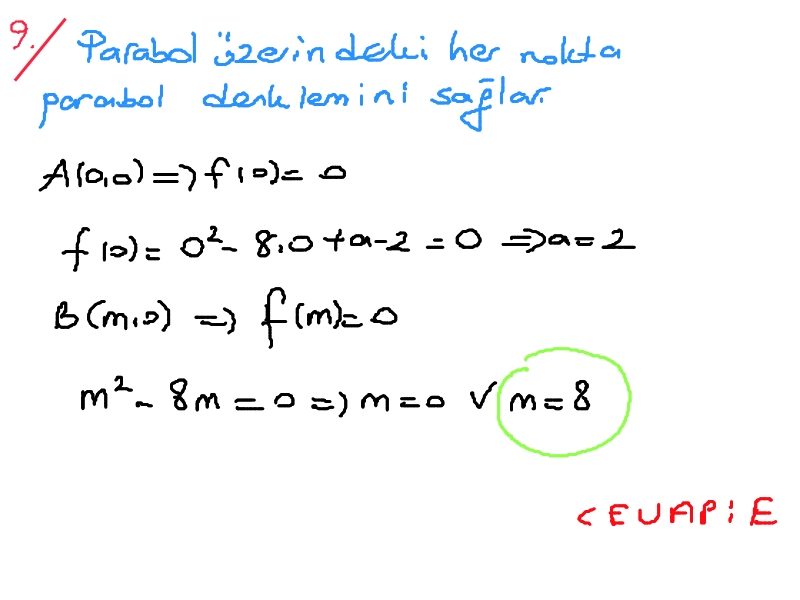 9. Parabol üzerindeki her nokta
parabol denklemini sağlar.
A(0,0) => f(0) = 0
f(0) = 0² - 8.0 + a - 2 = 0 => a = 2
B(m,0) => f(m) = 0
m² - 8m = 0 => m = 0 ∨ m = 8
CEVAP: E